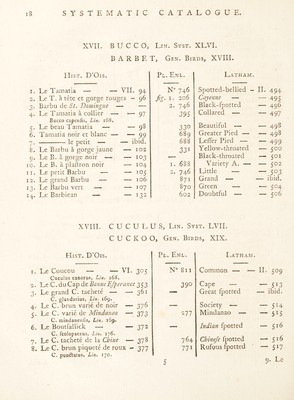 18 SYSTEMATIC CATALOGUE.
XVII. BUCCO, LIN. SYST. XLVI.
BARBET, GEN. BIRDS, XVIII.
HIST. D'OIS. PL. ENL. LATHAM.
1. Le Tamatia — — VII. 94 N° 746 Spotted-bellied — II. 494
2. Le T. à tête et gorge rouges — 96 fig. 1. 206 Cayenne — 495
3. Barbu de St. Domingue — — 2. 746 Black-spotted — 496
4. Le Tamatia à collier — — 97 395 Collared — 497
Bucco capensis, Lin. 168.
5. Le beau Tamatia — 98 330 Beautiful — 498
6. Tamatia noir et blanc — — 99 689 Greater Pied — 498
7. —— le petit — ibid. 688 Leffer Pied — 499
8. Le Barbu à gorge jaune — 102 331 Yellow-throated — 500
9. Le B. à gorge noir — — 103 Black-throated — 501
10. Le B. à plaftron noir — 104 1. 688 Variety A. — — 502
11. Le petit Barbu — — 105 2. 746 Little — — 503
12. Le grand Barbu — — 106 871 Grand — — ibid.
13. Le Barbu vert — — 107 870 Green — 504
14. Le Barbican — — 132 602 Doubtful — 506
XVIII. CUCULUS, LIN. SYST. LVII.
CUCKOO, GEN. BIRDS, XIX.
HIST. D'OIS. PL. ENL. LATHAM.
1. Le Coucou — — VI. 305 N° 811 Common — — II. 509
Cuculus canorus, Lin. 168.
2. Le C. du Cap de Bonne Efperance 353 390 Cape — — 513
3. Le grand C. tacheté — — 361 Great fpotted — ibid.
C. glandarius, Lin. 169.
4. Le C. brun varié de noir — 376 Society — — 514
5. Le C. varié de Mindanao — 373 277 Mindanao — — 515
C. mindanenfis, Lin. 169.
6. Le Boutfallick — — 372 Indian fpotted — 516
C. fcolopaceus, Lin. 170.
7. Le C. tacheté de la Chine — 378 764 Chinefe fpotted — 516
8. Le C. brun piqueté de roux — 377 771 Rufous fpotted — 517
C. punctatus, Lin. 170.
5 9. Le